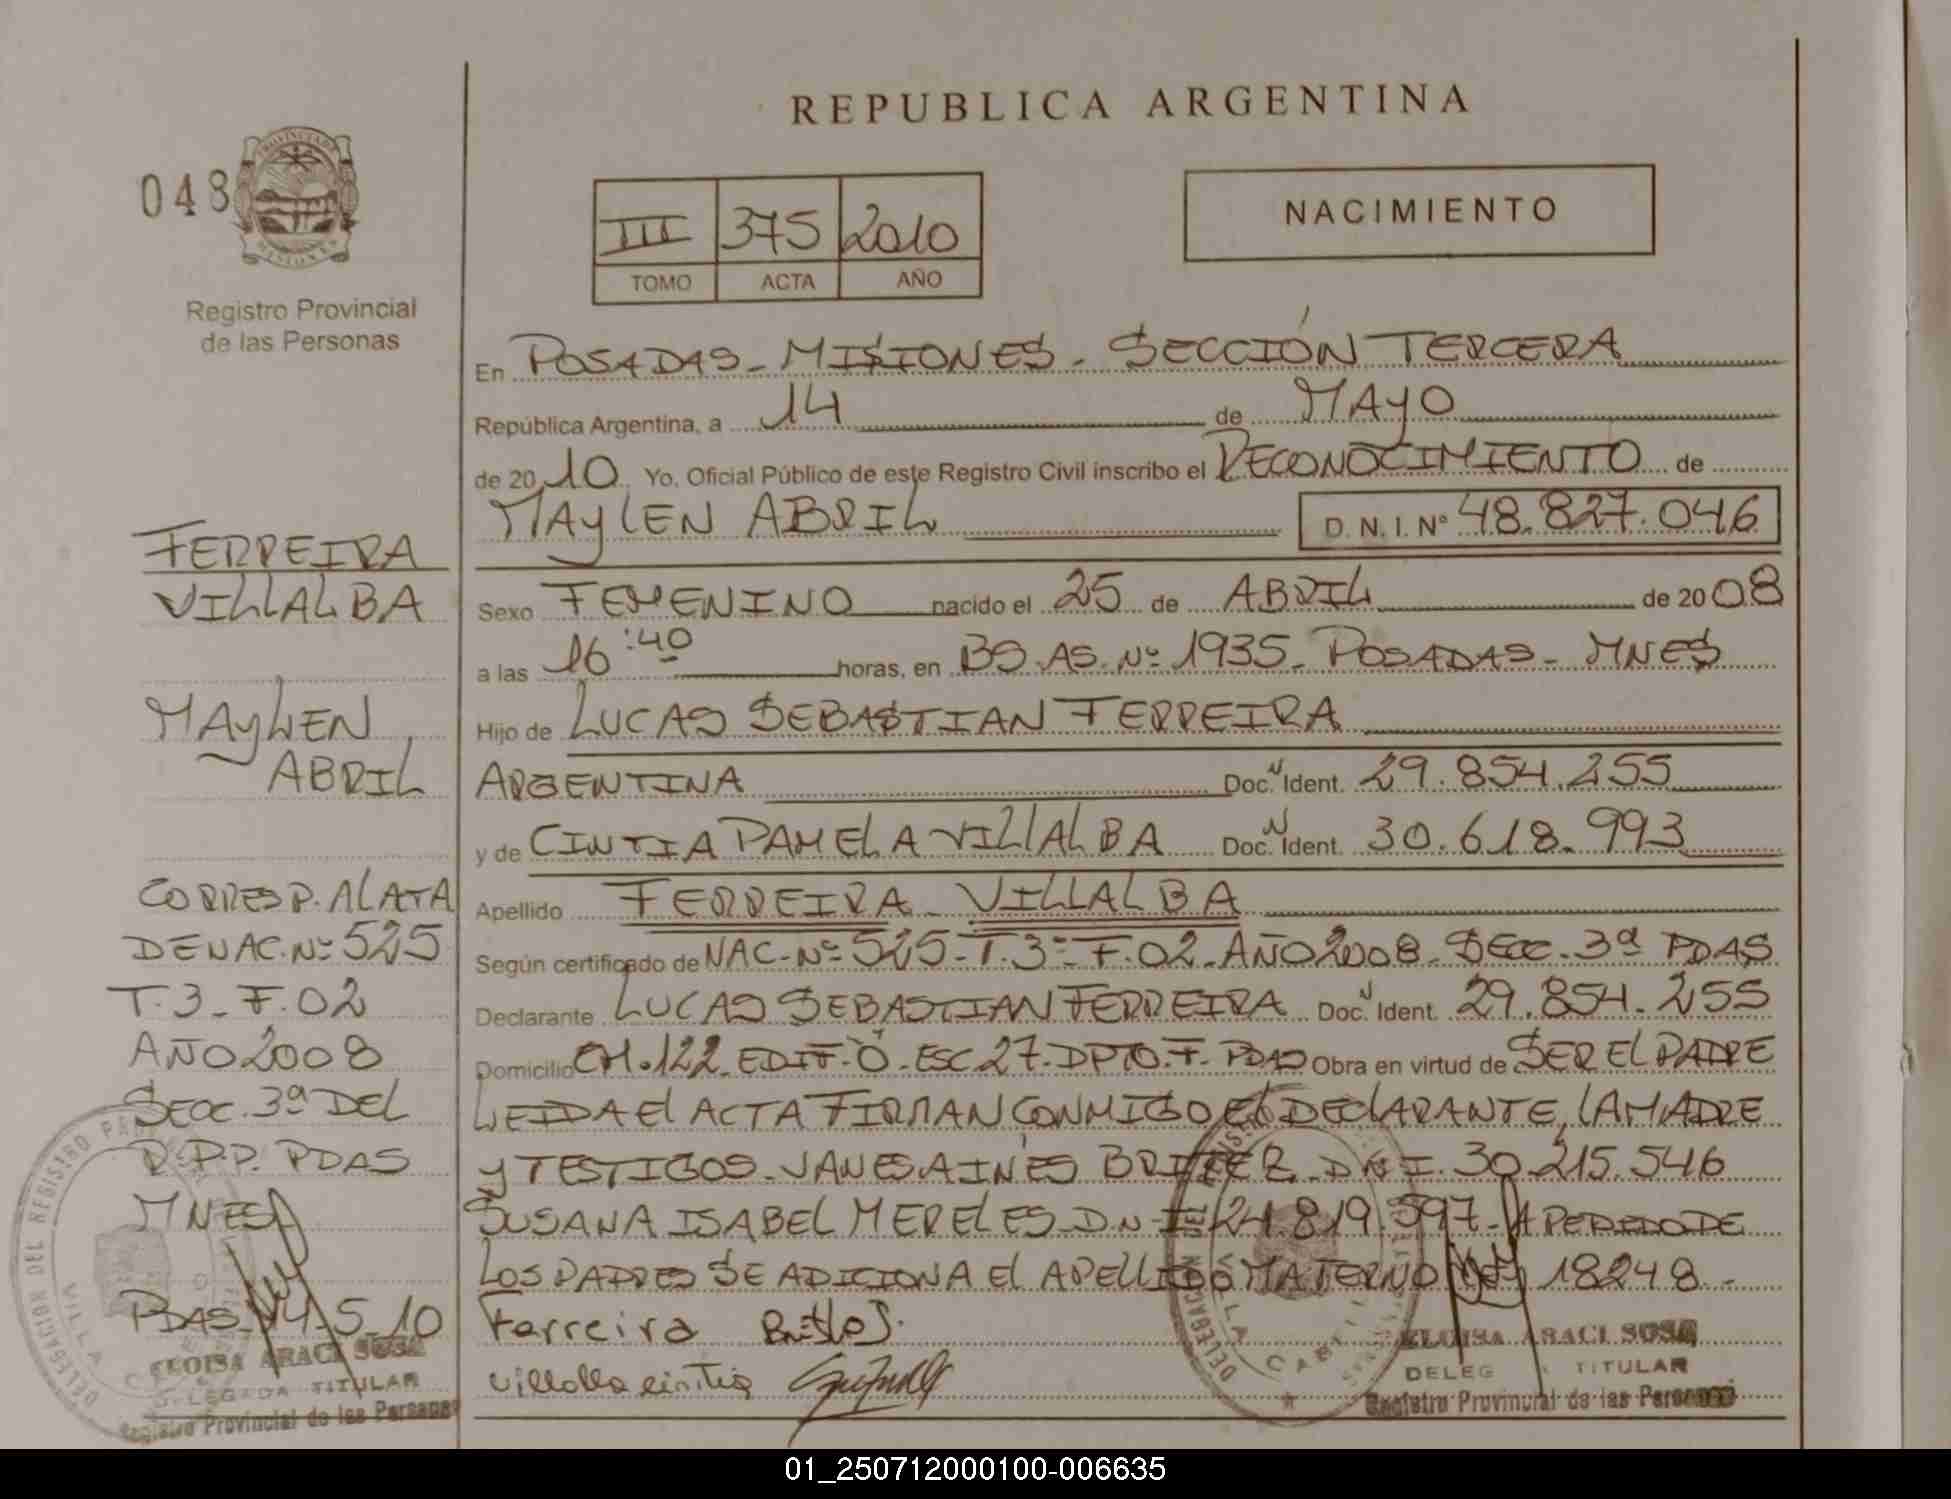 REPUBLICA ARGENTINA
048
PROVINCIA DE
MISIONES
Registro Provincial
de las Personas
III 375 2010
TOMO ACTA AÑO
NACIMIENTO
En POSADAS - MISIONES - SECCIÓN TERCERA
República Argentina, a 14 de MAYO
de 2010 Yo, Oficial Público de este Registro Civil inscribo el RECONOCIMIENTO de
MAYLEN ABRIL D.N.I.Nº 48.827.046
Sexo FEMENINO nacido el 25 de ABRIL de 2008
a las 16:40 horas, en BS.AS. Nº 1935 - POSADAS - MNES
Hijo de LUCAS SEBASTIAN FERREIRA
ARGENTINA Doc. N Ident. 29.854.255
y de CINTIA PAMELA VILLALBA Doc. N Ident. 30.618.993
Apellido FERREIRA - VILLALBA
Según certificado de NAC-Nº 525-T.3º-F.02-AÑO 2008-SECC.3ª PDAS
Declarante LUCAS SEBASTIAN FERREIRA Doc. N Ident. 29.854.255
Domicilio CH.122-EDIF-O-ESC 27-DPTO.F-PDAS Obra en virtud de SER EL PADRE
LEIDA El ACTA FIRMAN CONMIGO El DEClARANTE, lA MADRE
y TESTIGOS - VANESA INES BRITEZ - D.N.I. 30.215.546
SUSANA ISABEL MERELES - D.N.I 24.819.597 - A PEDIDO DE
LOS PADRES SE ADICIONA El APELLIDO MATERNO LEY 18248 -
Ferreira
ELOISA ARACI SOSA
DELEG TITULAR
Registro Provincial de las Personas
FERREIRA
VILLALBA
MAYLEN
ABRIL
CORRESP. Al ACTA
DE NAC. Nº 525
T.3 - F.02
AÑO 2008
SECC. 3ª DEL
R.P.P. PDAS
MNES
PDAS 14-5-10
ELOISA ARACI SOSA
DELEGADA TITULAR
Registro Provincial de las Personas
DELEGACION DEL REGISTRO
VILLA
DELEGACION DEL
VILLA CABELLO
01_250712000100-006635